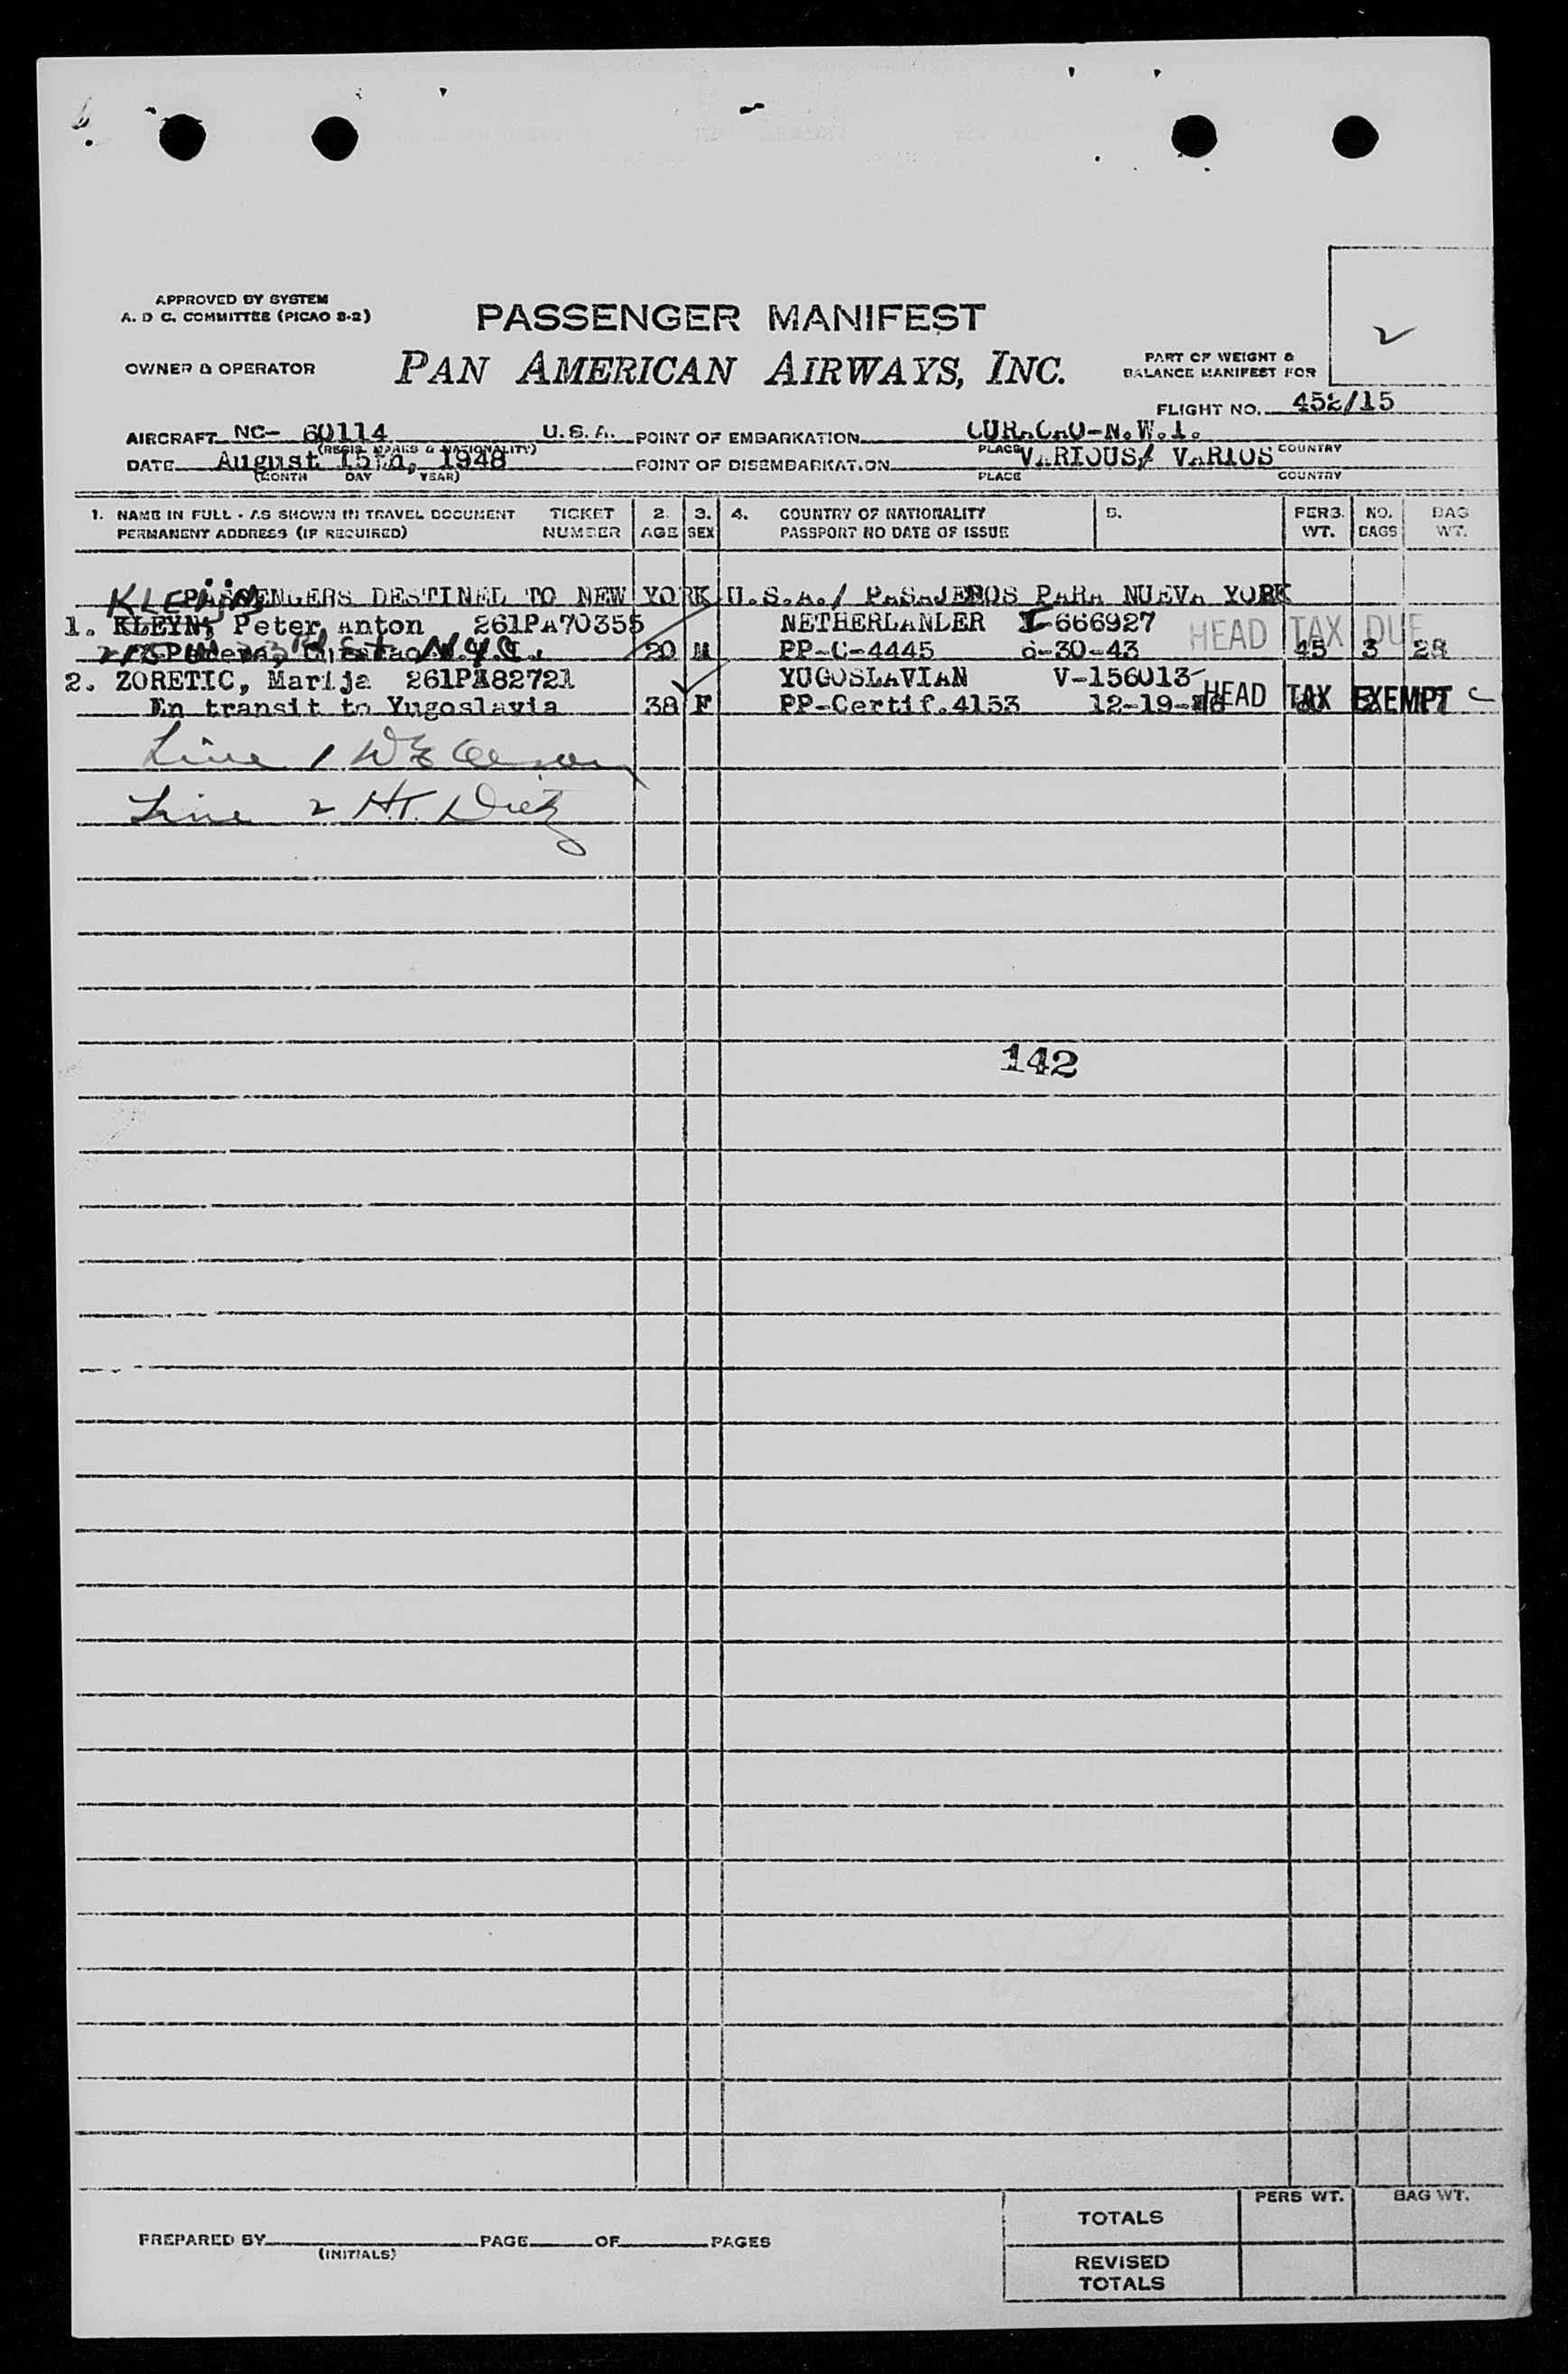 APPROVED BY SYSTEM
A. D C. COMMITTEE (PICAO S-2)
PASSENGER MANIFEST
2
OWNER & OPERATOR
PAN AMERICAN AIRWAYS, INC.
PART OF WEIGHT &
BALANCE MANIFEST FOR
FLIGHT NO. 452/15
AIRCRAFT NC- 60114 U.S.A. POINT OF EMBARKATION CURACAO-N.W.I.
(REGIS. MARKS & NATIONALITY) PLACE COUNTRY
DATE August 15th, 1948 POINT OF DISEMBARKATION VARIOUS/ VARIOS
(MONTH DAY YEAR) PLACE COUNTRY
1. NAME IN FULL - AS SHOWN IN TRAVEL DOCUMENT TICKET 2. 3. 4. COUNTRY OF NATIONALITY 5. PERS. NO. BAG
PERMANENT ADDRESS (IF REQUIRED) NUMBER AGE SEX PASSPORT NO DATE OF ISSUE WT. BAGS WT.
PASSENGERS DESTINED TO NEW YORK U.S.A./ PASAJEROS PARA NUEVA YORK
1. KLEYN, Peter Anton 261PA70355 NETHERLANDER I-666927 HEAD TAX DUE
N.Y.C. 20 M PP-C-4445 -30-43 45 3 28
2. ZORETIC, Marija 261PA82721 YUGOSLAVIAN V-156013
En transit to Yugoslavia 38 F PP-Certif.4153 12-19- HEAD TAX EXEMPT
Line 1
Line 2 H.T. Dietz
142
TOTALS PERS WT. BAG WT.
PREPARED BY PAGE OF PAGES
(INITIALS)
REVISED
TOTALS